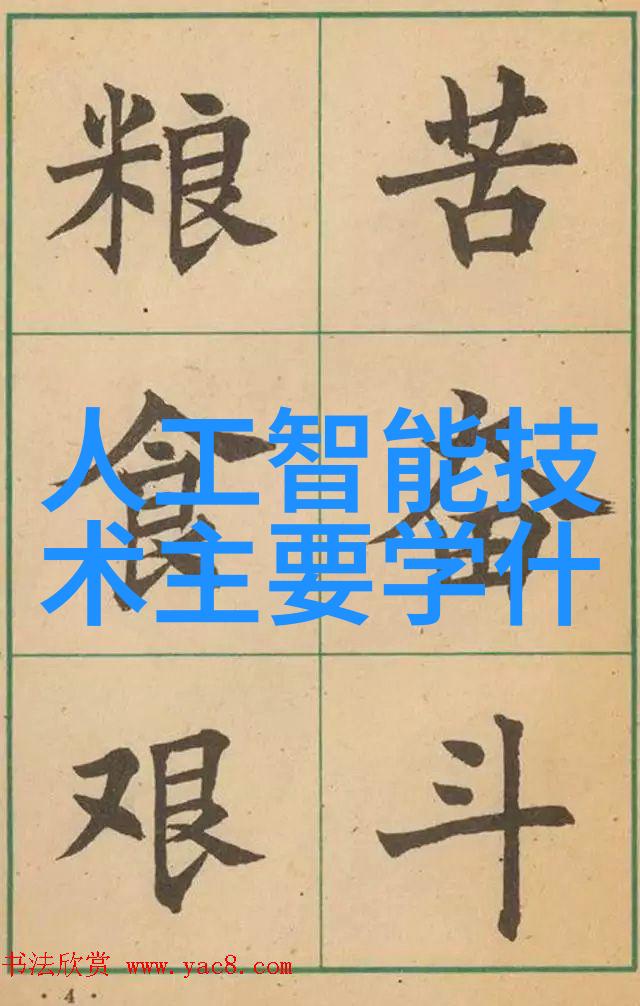 粮食艰
苦奋斗
人工智能技
术主要学什
书法欣赏 www.yac8.com
· 4 ·